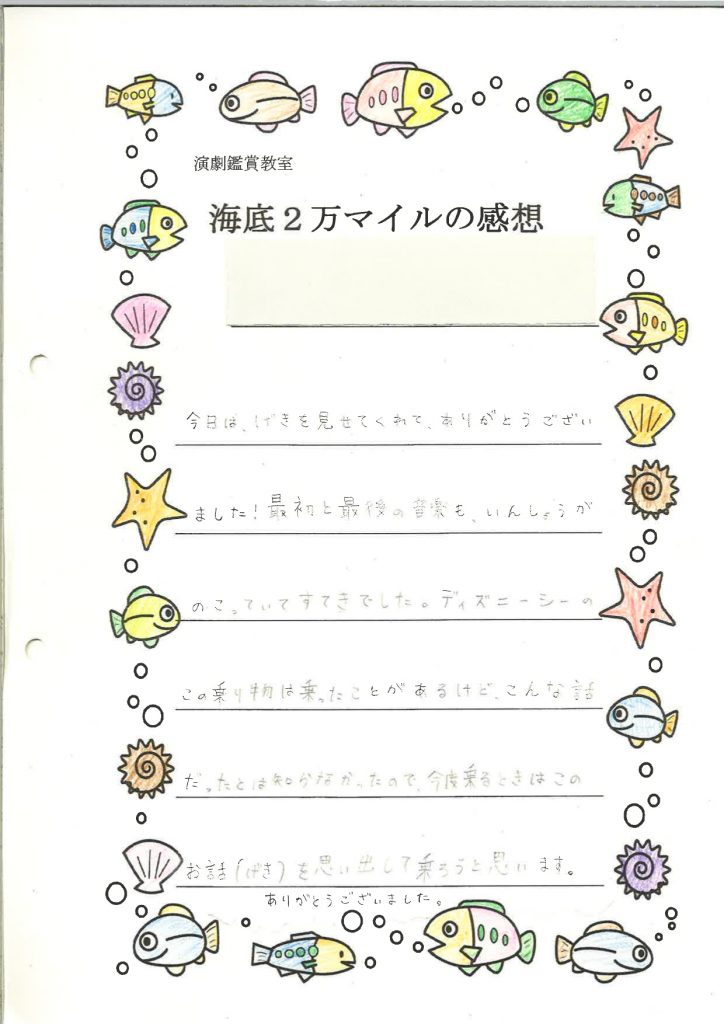 演劇鑑賞教室
海底２万マイルの感想
今日は、げきを見せてくれて、ありがとうござい
ました！最初と最後の音楽も、いんしょうが
のこっていてすてきでした。ディズニーシーの
この乗り物は乗ったことがあるけど、こんな話
だったとは知らなかったので、今度乗るときはこの
お話(げき)を思い出して乗ろうと思います。
ありがとうございました。